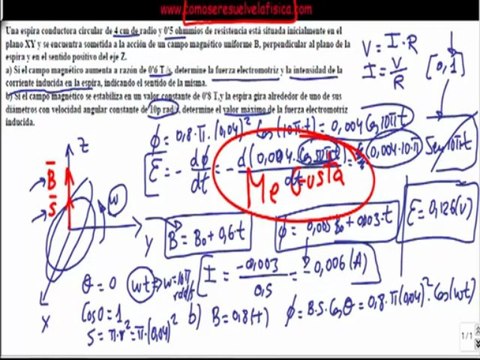 www.comoseresuelvelafisica.com
Una espira conductora circular de 4 cm de radio y 0'5 ohmmios de resistencia está situada inicialmente en el
plano XY y se encuentra sometida a la acción de un campo magnético uniforme B, perpendicular al plano de la
espira y en el sentido positivo del eje Z.
a) Si el campo magnético aumenta a razón de 0'6 T/s, determine la fuerza electromotriz y la intensidad de la
corriente inducida en la espira, indicando el sentido de la misma.
b) Si el campo magnético se estabiliza en un valor constante de 0'8 T,y la espira gira alrededor de uno de sus
diámetros con velocidad angular constante de 10p rad/s, determine el valor máximo de la fuerza electromotriz
inducida.
V = I·R
I = V/R
[0,1]
ϕ = 0,8·π·(0,04)² Cos(10πt) = 0,004 Cos 10πt
E = - dϕ/dt = - d(0,004·Cos10πt)/dt = 0,004·10π Sen 10πt
Me Gusta
E = 0,126(V)
Z
B
S
ω
Y
X
B = B0 + 0,6·t
ϕ = 0,005 B0 + 0,003·t
I = -0,003/0,5 = -0,006 (A)
θ = 0
ωt
ω = 10π rad/s
Cos0 = 1
S = π·R² = π·(0,04)²
b) B = 0,8(T)
ϕ = B·S·Cosθ = 0,8·π(0,04)²·Cos(ωt)
1/1